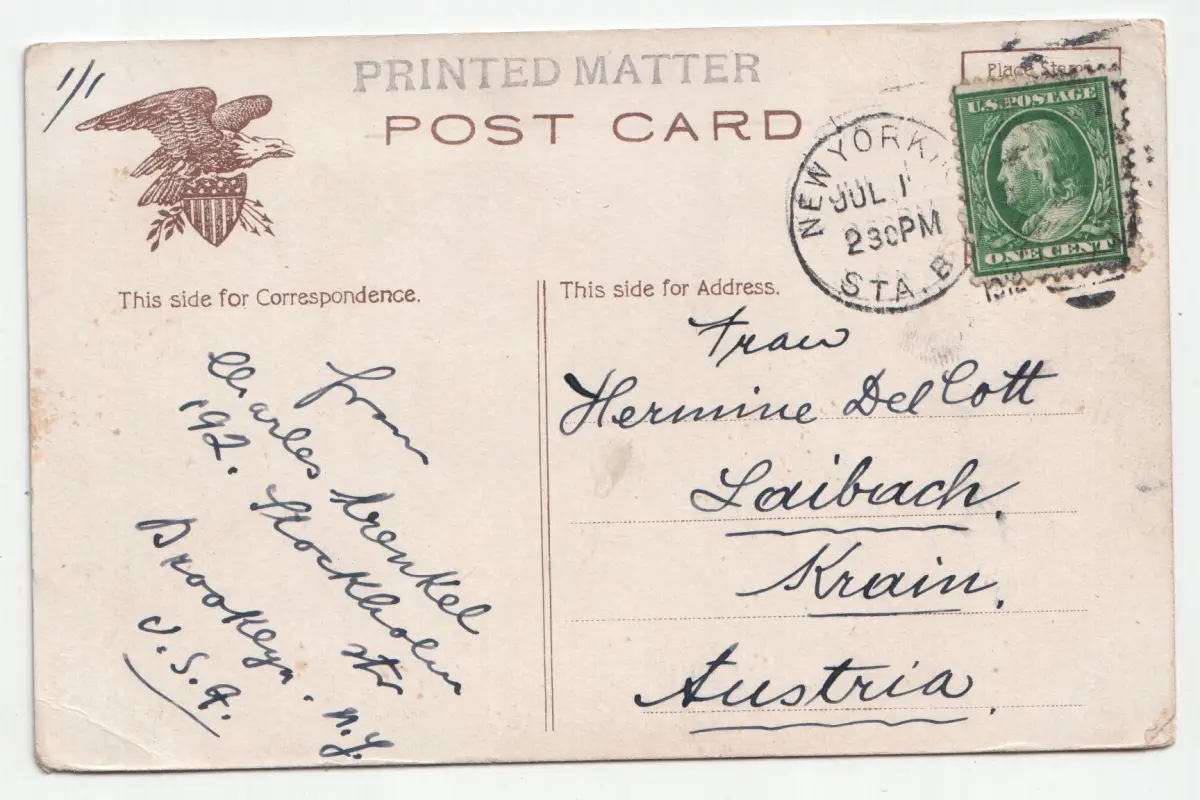 1/1
PRINTED MATTER
POST CARD
Place Stamp
U.S. POSTAGE
ONE CENT
NEW YORK
JUL 1
230PM
STA. B
1912
This side for Correspondence.
This side for Address.
from
Charles Krenkel
192. Stockholm str
Brooklyn. N.Y.
U.S.A.
Frau
Hermine Del Cott
Laibach,
Krain,
Austria.